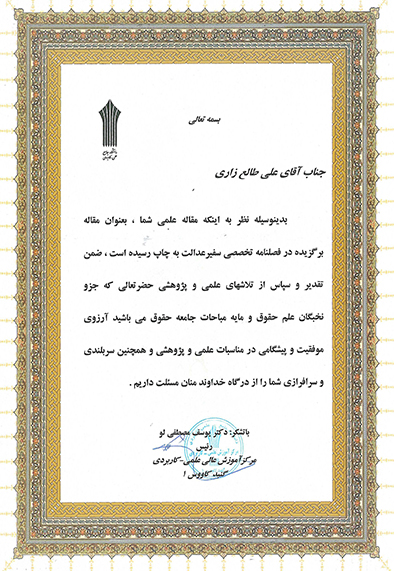 بسمه تعالی
جناب آقای علی طالع زاری
بدینوسیله نظر به اینکه مقاله علمی شما ، بعنوان مقاله
برگزیده در فصلنامه تخصصی سفیرعدالت به چاپ رسیده است ، ضمن
تقدیر و سپاس از تلاشهای علمی و پژوهشی حضرتعالی که جزو
نخبگان علم حقوق و مایه مباحات جامعه حقوق می باشید آرزوی
موفقیت و پیشگامی در مناسبات علمی و پژوهشی و همچنین سربلندی
و سرافرازی شما را از درگاه خداوند منان مسئلت داریم .
باتشکر: دکتر یوسف مصطفی لو
رئیس
مرکزآموزش عالی علمی-کاربردی
گنبد کاووس ۱